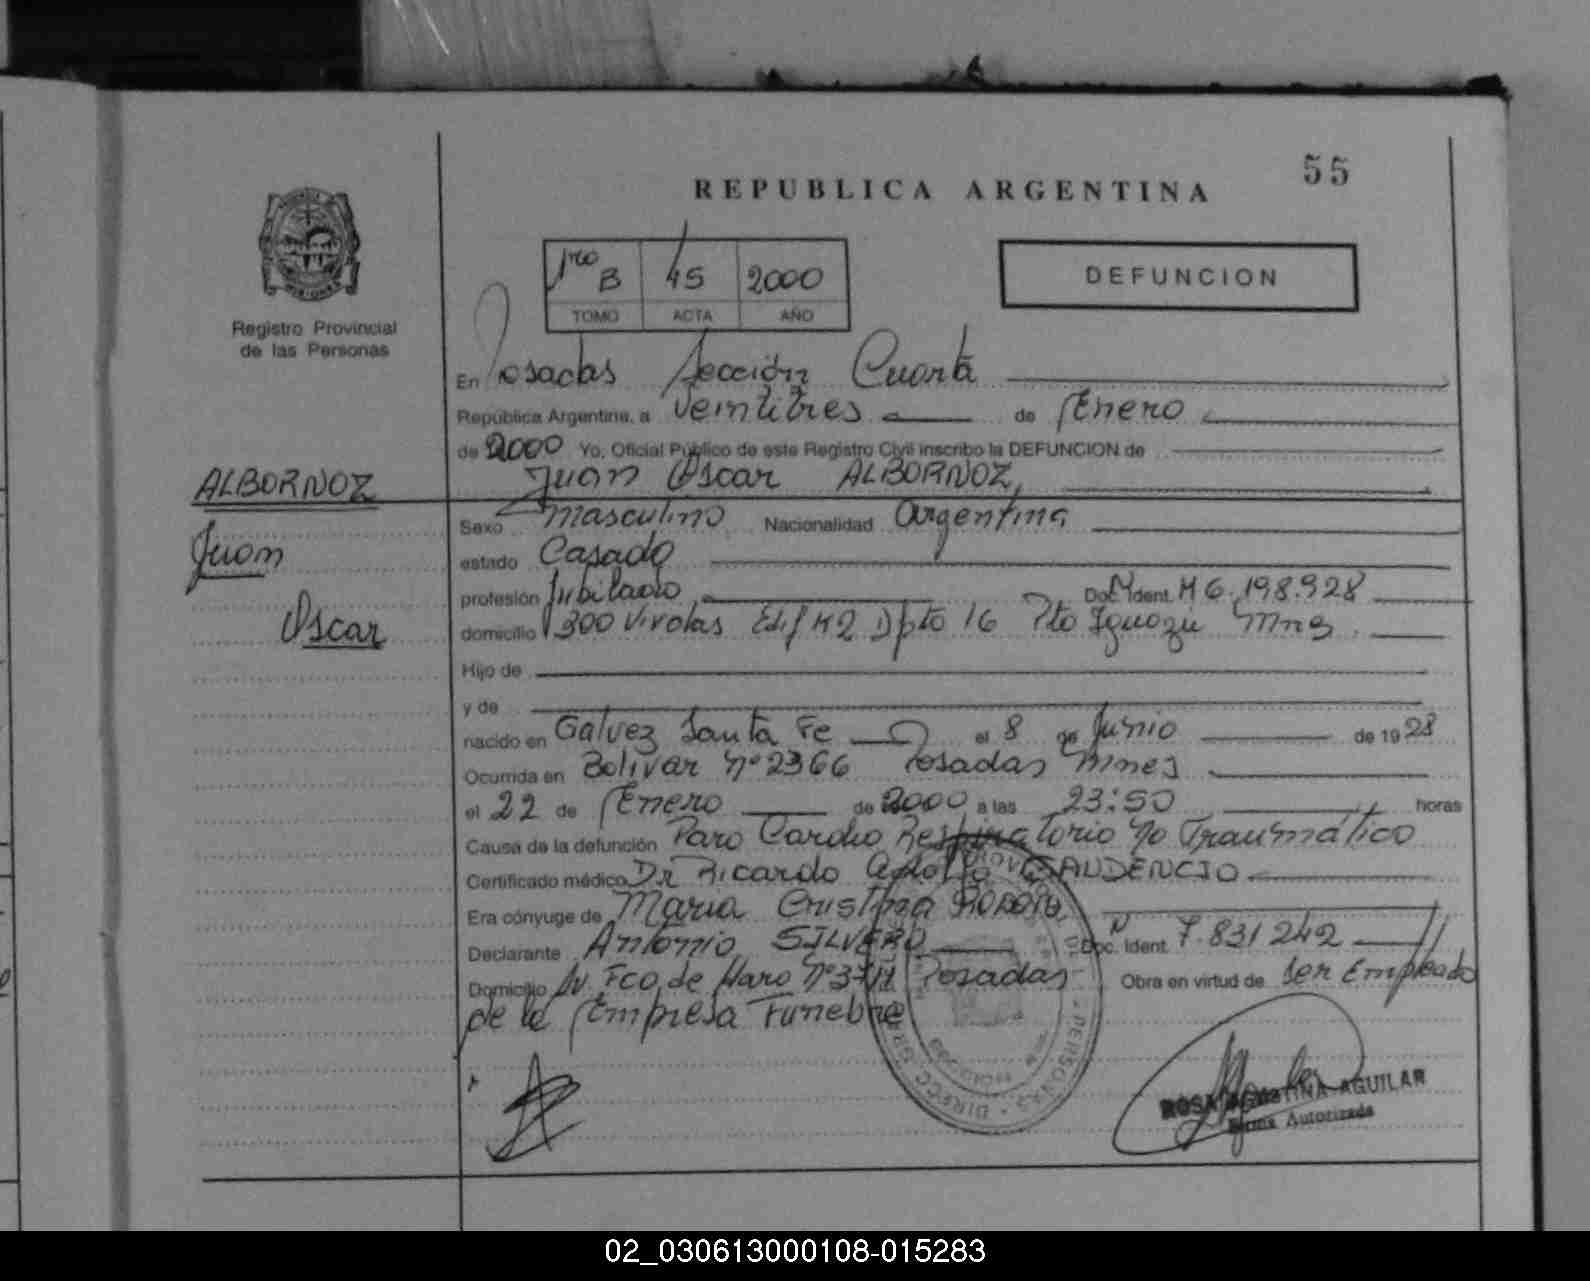 55
REPUBLICA ARGENTINA
1ro B 45 2000
TOMO ACTA AÑO
DEFUNCION
Registro Provincial
de las Personas
En Posadas Sección Cuarta
República Argentina, a veintitres de Enero
de 2000 Yo, Oficial Público de este Registro Civil inscribo la DEFUNCION de
Juan Oscar ALBORNOZ
ALBORNOZ
Juan
Oscar
Sexo masculino Nacionalidad Argentina
estado Casado
profesión Jubilado Doc. Ident. M 6.198.928
domicilio 300 Vivdas Edif K2 Dpto 16 Pto Iguazu Mns
Hijo de
y de
nacido en Galvez Santa Fe el 8 de Junio de 1928
Ocurrida en Bolivar Nº 2366 Posadas Mnes
el 22 de Enero de 2000 a las 23:50 horas
Causa de la defunción Paro Cardio Respiratorio no Traumático
Certificado médico Dr Ricardo Adolfo GAUDENCIO
Era cónyuge de Maria Cristina
Declarante Antonio SILVERO Doc. Ident. 7.831 242
Domicilio Av. Fco de Haro Nº Posadas Obra en virtud de ser Empleado
de la Empresa Funebre
ROSA AGUSTINA AGUILAR
Firma Autorizada
02_030613000108-015283